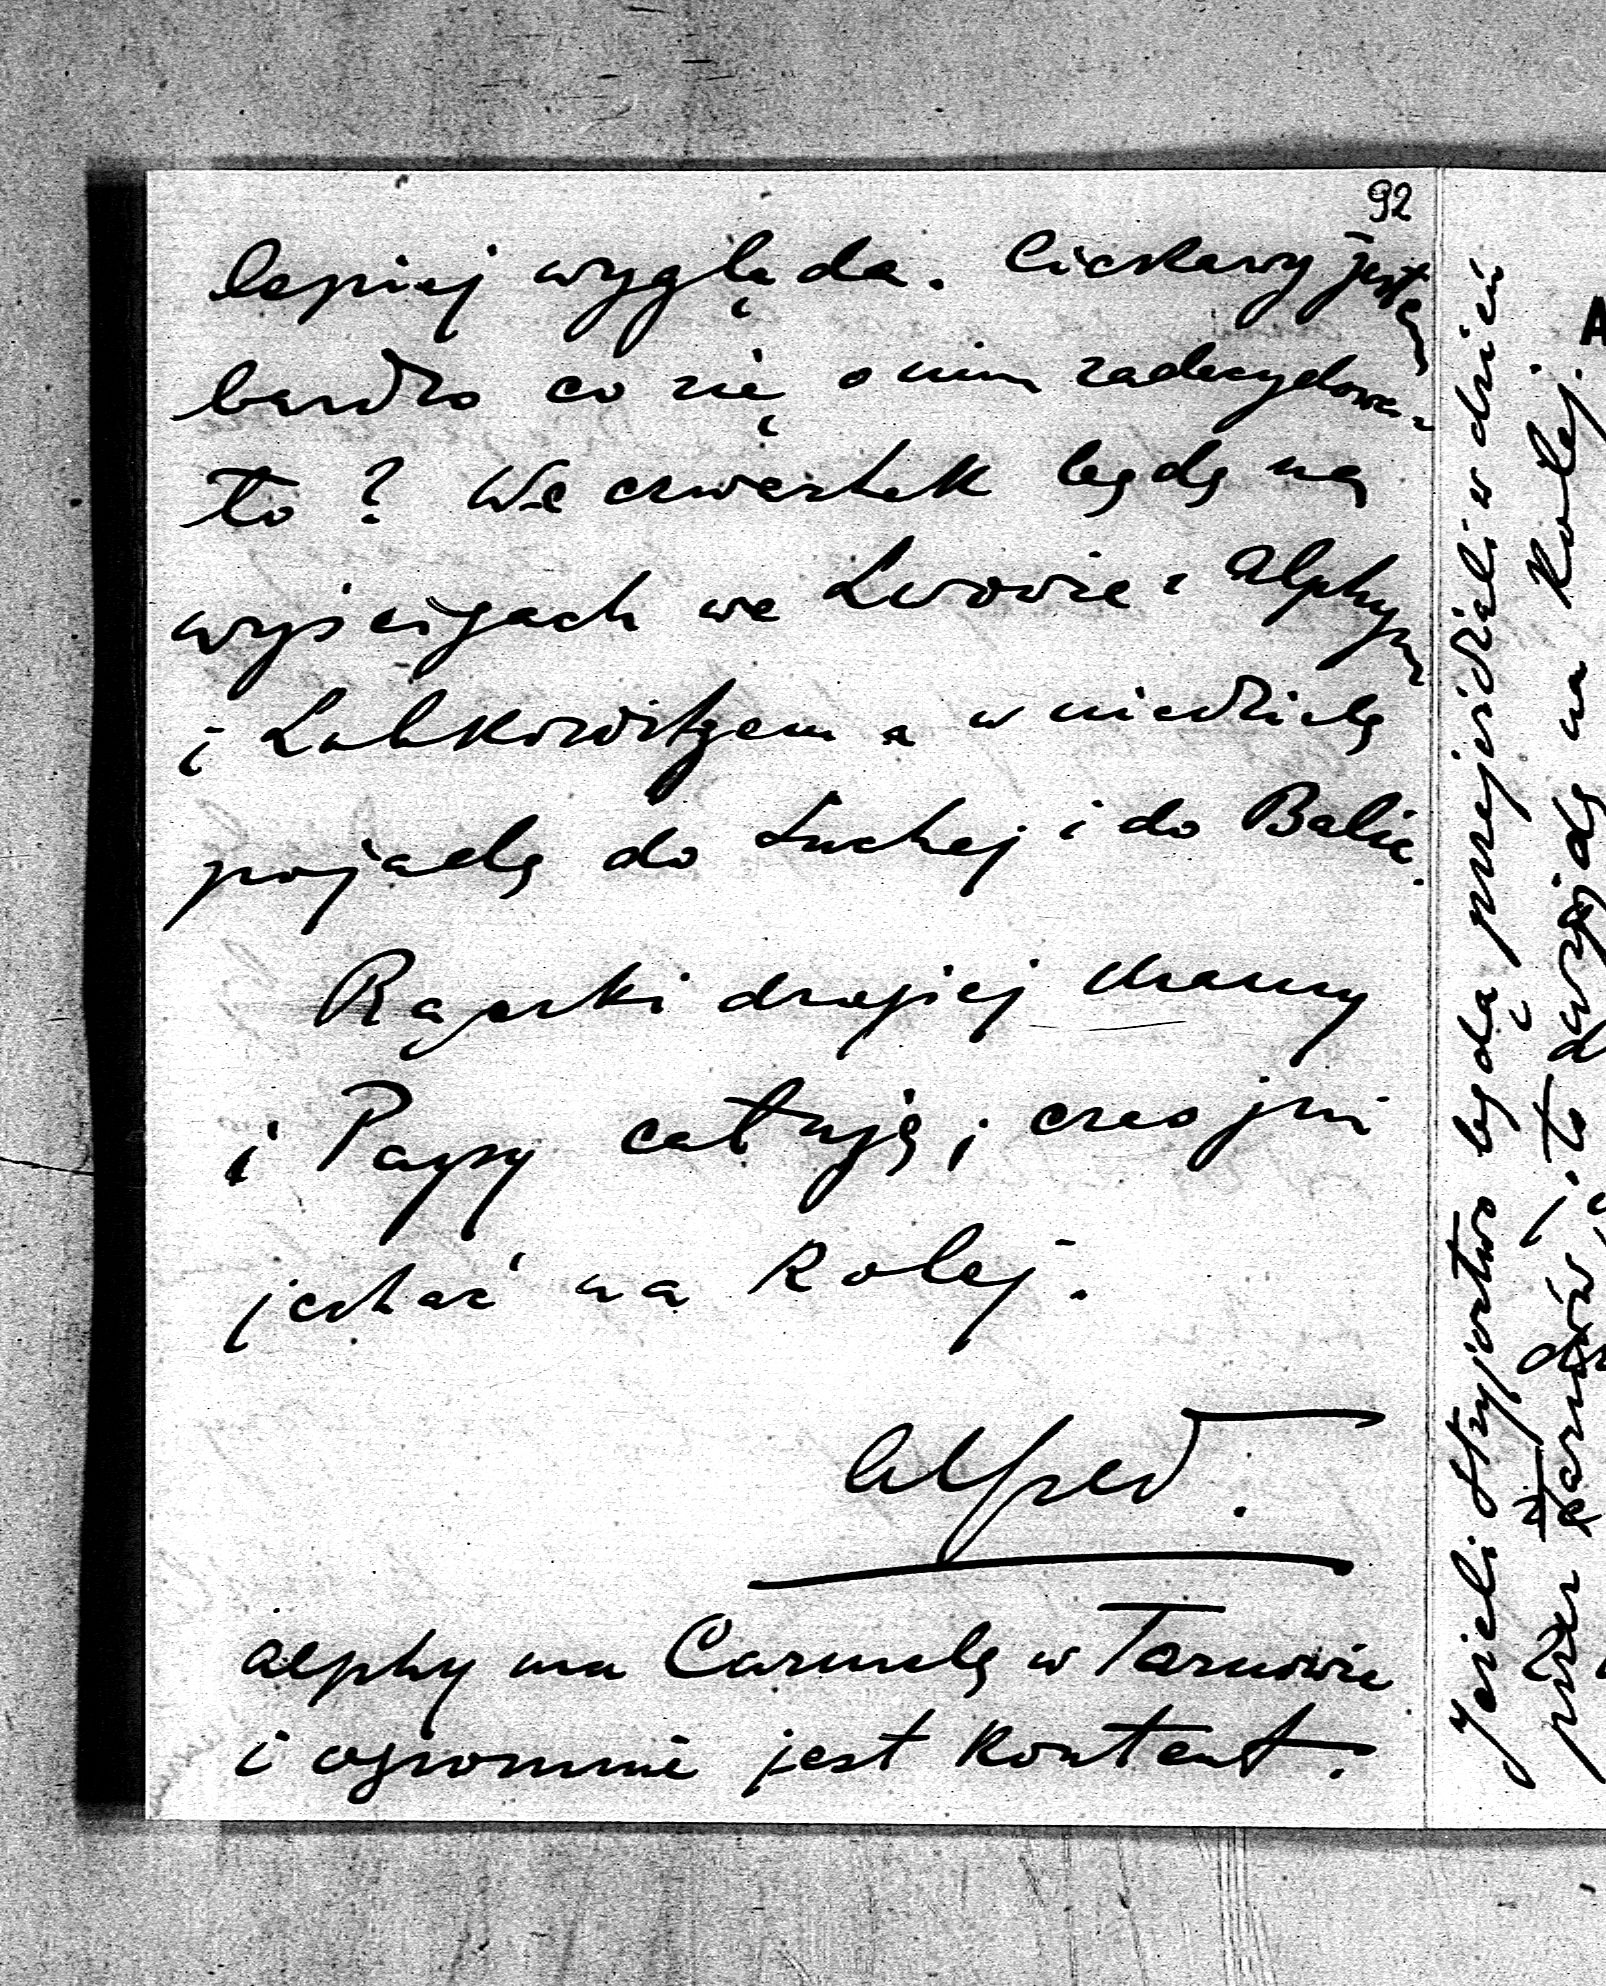 92
lepiej wygląda. Ciekawy jestem
bardzo co się o nim zadecydowa-
ło? We czwartek będę na
wyścigach we Lwowie z Alphym
i Lubkowitzem a w niedzielę
pojadę do Suchej i do Balic.
Rączki drogiej Mamy
i Papy całuję, czas jmi
jechać na Kolej.
Alfred.
Alphy ma Carmelę w Tarnowie
i ogromnie jest Kontent.
Jeżeli Hujostwo będą przejeżdżali w dzień
przez Tarnów, to wyjdę na Kolej.